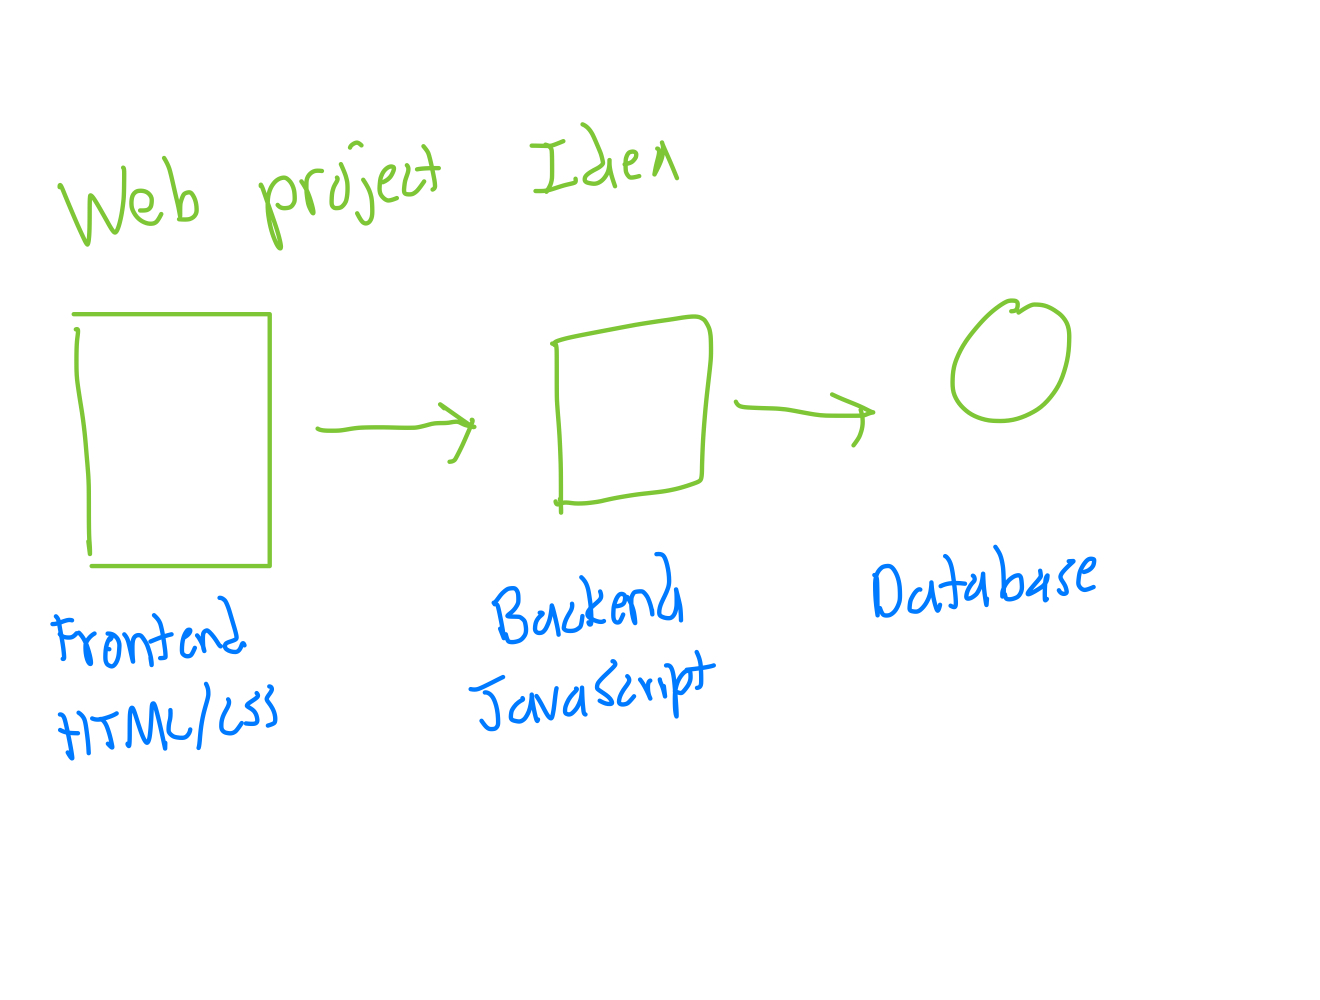 Web project Idea
Frontend
HTML/CSS
Backend
JavaScript
Database